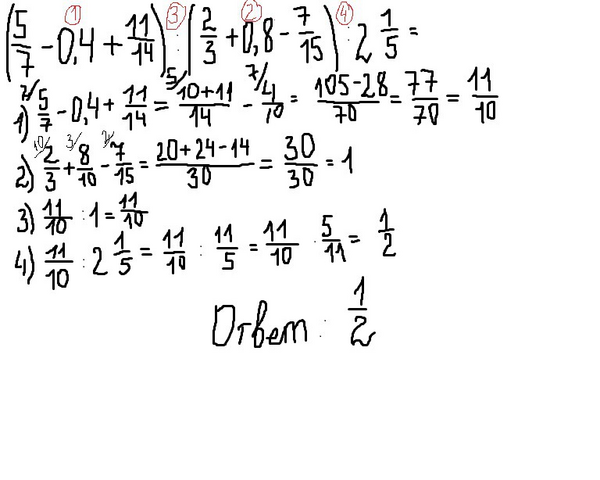 (5/7 - 0,4 + 11/14) : (2/3 + 0,8 - 7/15) : 2 1/5 =
① ③ ② ④
1) 5/7 - 0,4 + 11/14 = (10+11)/14 - 4/10 = (105-28)/70 = 77/70 = 11/10
2/ 5/ 7/
2) 2/3 + 8/10 - 7/15 = (20+24-14)/30 = 30/30 = 1
10/ 3/ 2/
3) 11/10 : 1 = 11/10
4) 11/10 : 2 1/5 = 11/10 : 11/5 = 11/10 · 5/11 = 1/2
Ответ : 1/2